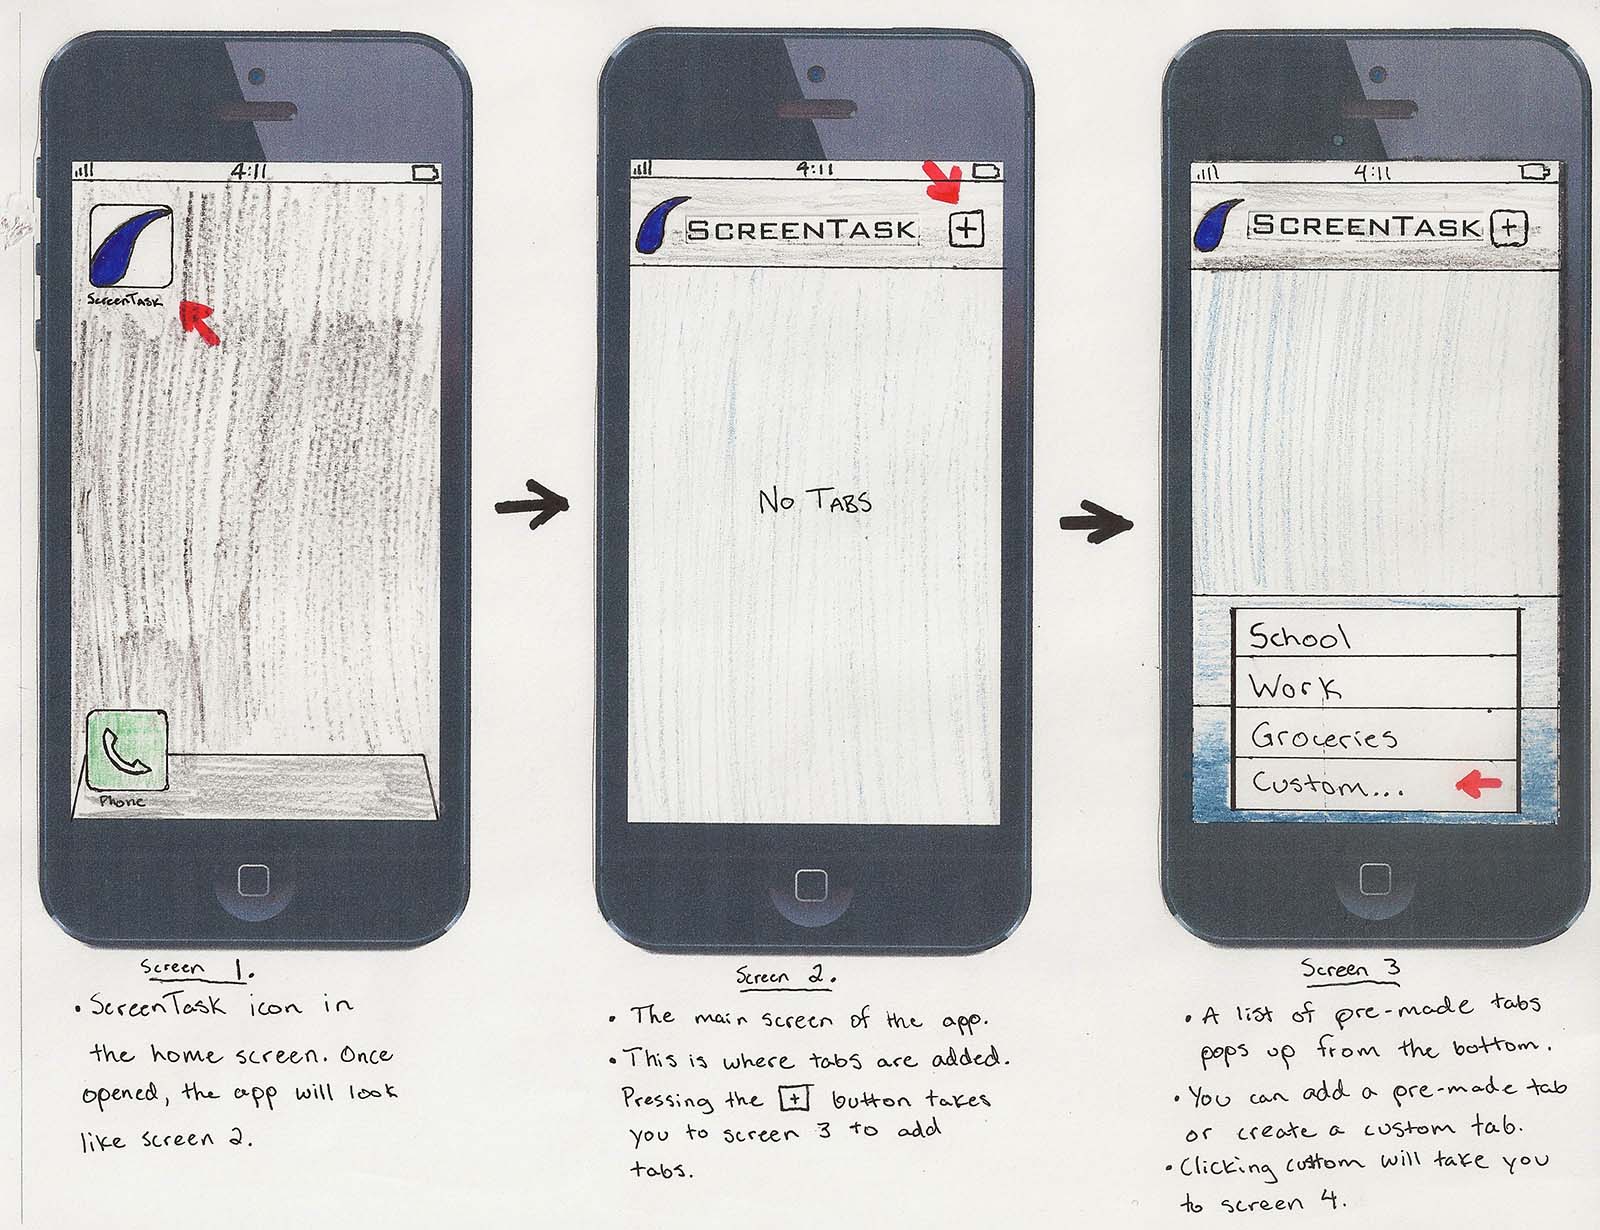 4:11
ScreenTask
Phone
Screen 1.
• ScreenTask icon in
the home screen. Once
opened, the app will look
like screen 2.
4:11
SCREENTASK +
No TABS
Screen 2.
• The main screen of the app.
• This is where tabs are added.
Pressing the + button takes
you to screen 3 to add
tabs.
4:11
SCREENTASK +
School
Work
Groceries
Custom...
Screen 3
• A list of pre-made tabs
pops up from the bottom.
• You can add a pre-made tab
or create a custom tab.
• Clicking custom will take you
to screen 4.